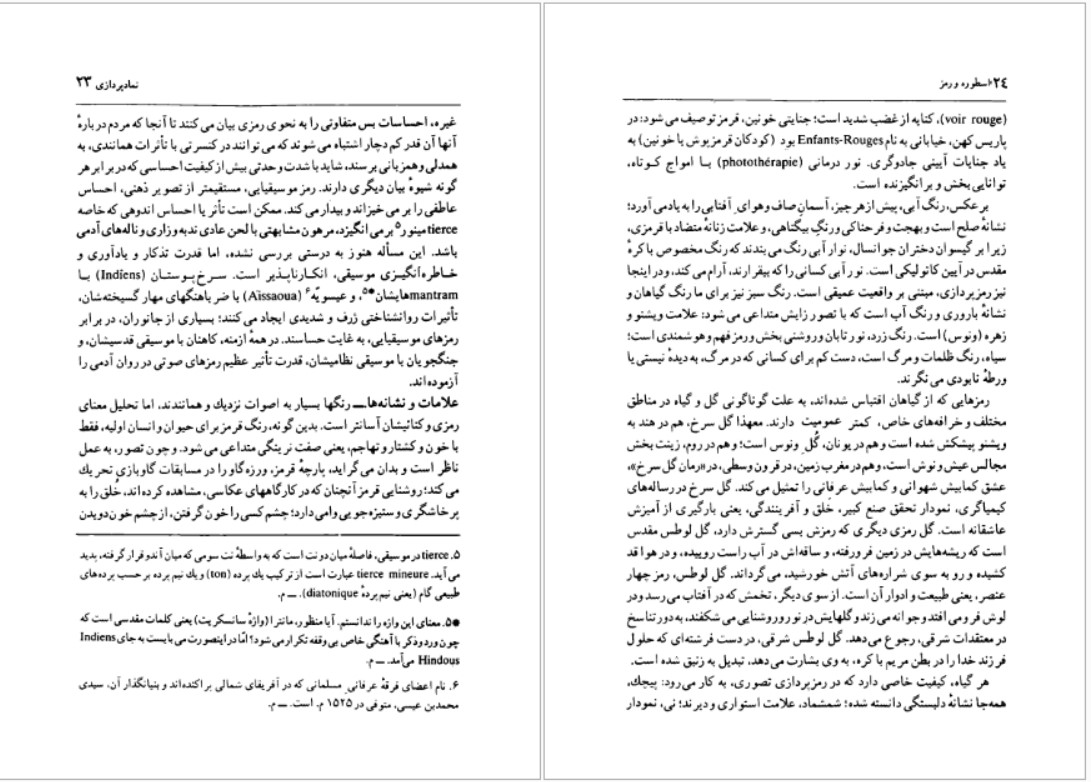 نمادپردازی ۲۳
غیره، احساسات بس متفاوتی را به نحوی رمزی بیان می‌کنند تا آنجا که مردم دربارهٔ
آنها آن قدر کم دچار اشتباه می‌شوند که می‌توانند در کنسرتی با تأثرات همانندی، به
همدلی و همزبانی برسند، شاید با شدت و حدتی بیش از کیفیت احساسی که در برابر هر
گونه شیوهٔ بیان دیگری دارند. رمز موسیقیایی، مستقیمتر از تصویر ذهنی، احساس
عاطفی را بر می‌خیزاند و بیدار می‌کند. ممکن است تأثر یا احساس اندوهی که خاصه
tierce مینور۵ برمی‌انگیزد، مرهون مشابهتی با لحن عادی ندبه و زاری و ناله‌های آدمی
باشد. این مسأله هنوز به درستی بررسی نشده، اما قدرت تذکار و یادآوری و
خاطره‌انگیزی موسیقی، انکارناپذیر است. سرخ‌پوستان (Indiens) با
mantramهایشان*۵، و عیسویّه۶ (Aïssaoua) با ضرباهنگهای مهار گسیخته‌شان،
تأثیرات روانشناختی ژرف و شدیدی ایجاد می‌کنند؛ بسیاری از جانوران، در برابر
رمزهای موسیقیایی، به غایت حساسند. در همهٔ ازمنه، کاهنان با موسیقی قدسیشان، و
جنگجویان با موسیقی نظامیشان، قدرت تأثیر عظیم رمزهای صوتی در روان آدمی را
آزموده‌اند.
علامات و نشانه‌ها ــ رنگها بسیار به اصوات نزدیك و همانندند، اما تحلیل معنای
رمزی و کنائیشان آسانتر است. بدین گونه، رنگ قرمز برای حیوان و انسان اولیه، فقط
با خون و کشتار و تهاجم، یعنی صفت نرینگی متداعی می‌شود. و چون تصور، به عمل
ناظر است و بدان می‌گراید، پارچهٔ قرمز، ورزه گاو را در مسابقات گاوبازی تحریك
می‌کند؛ روشنایی قرمز آنچنان که در کارگاههای عکاسی، مشاهده کرده‌اند، خُلق را به
پرخاشگری و ستیزه‌جویی وامی‌دارد؛ چشم کسی را خون گرفتن، از چشم خون دویدن
۵. tierce در موسیقی، فاصلهٔ میان دو نت است که به واسطهٔ نت سومی که میان آندو قرار گرفته، پدید
می‌آید. tierce mineure عبارت است از ترکیب یك پرده (ton) و یك نیم پرده بر حسب پرده‌های
طبیعی گام (یعنی نیم پردهٔ diatonique). ــ م.
*۵. معنای این واژه را ندانستم. آیا منظور، مانترا (واژهٔ سانسکریت) یعنی کلمات مقدسی است که
چون ورد و ذکر با آهنگی خاص بی‌وقفه تکرار می‌شود؟ امّا در اینصورت می‌بایست به جای Indiens
Hindous می‌آمد. ــ م.
۶. نام اعضای فرقهٔ عرفانی مسلمانی که در آفریقای شمالی پراکنده‌اند و بنیانگذار آن، سیدی
محمدبن عیسی، متوفی در ۱۵۲۵ م. است. ــ م.
۲۴ اسطوره و رمز
(voir rouge)، کنایه از غضب شدید است؛ جنایتی خونین، قرمز توصیف می‌شود: در
پاریس کهن، خیابانی به نام Enfants-Rouges بود (کودکان قرمزپوش یا خونین) به
یاد جنایات آیینی جادوگری. نور درمانی (photothérapie) با امواج کوتاه،
توانایی بخش و برانگیزنده است.
برعکس، رنگ آبی، پیش از هر چیز، آسمانِ صاف و هوای آفتابی را به یاد می‌آورد؛
نشانهٔ صلح است و بهجت و فرحناکی و رنگِ بیگناهی، و علامت زنانهٔ متضاد با قرمزی،
زیرا بر گیسوان دختران جوانسال، نوار آبی رنگ می‌بندند که رنگ مخصوص باکرهٔ
مقدس در آیین کاتولیکی است. نور آبی کسانی را که بیقرارند، آرام می‌کند، و در اینجا
نیز رمزپردازی، مبتنی بر واقعیت عمیقی است. رنگ سبز نیز برای ما رنگ گیاهان و
نشانهٔ باروری و رنگ آب است که با تصور زایش متداعی می‌شود: علامت ویشنو و
زهره (ونوس) است. رنگ زرد، نور تابان و روشنی بخش و رمز فهم و هوشمندی است؛
سیاه، رنگ ظلمات و مرگ است، دست کم برای کسانی که در مرگ، به دیدهٔ نیستی یا
ورطهٔ نابودی می‌نگرند.
رمزهایی که از گیاهان اقتباس شده‌اند، به علت گوناگونی گل و گیاه در مناطق
مختلف و خرافه‌های خاص، کمتر عمومیت دارند. معهذا گل سرخ، هم در هند به
ویشنو پیشکش شده است و هم در یونان، گُلِ ونوس است؛ و هم در روم، زینت بخش
مجالس عیش و نوش است، و هم در مغرب زمین، در قرون وسطی، در «رمان گل سرخ»،
عشق کمابیش شهوانی و کمابیش عرفانی را تمثیل می‌کند. گل سرخ در رساله‌های
کیمیاگری، نمودار تحقق صنع کبیر، خَلق و آفرینندگی، یعنی بارگیری از آمیزش
عاشقانه است. گل رمزی دیگری که رمزش بسی گسترش دارد، گل لوطس مقدس
است که ریشه‌هایش در زمین فرورفته، و ساقه‌اش در آب راست روییده، و در هوا قد
کشیده و رو به سوی شراره‌های آتش خورشید، می‌گرداند. گل لوطس، رمز چهار
عنصر، یعنی طبیعت و ادوار آن است. از سوی دیگر، تخمش که در آفتاب می‌رسد و در
لوش فرو می‌افتد و جوانه می‌زند و گلهایش در نور و روشنایی می‌شکفند، به دور تناسخ
در معتقدات شرقی، رجوع می‌دهد. گل لوطس شرقی، در دست فرشته‌ای که حلول
فرزند خدا را در بطن مریم باکره، به وی بشارت می‌دهد، تبدیل به زنبق شده است.
هر گیاه، کیفیت خاصی دارد که در رمزپردازی تصوری، به کار می‌رود: پیچك،
همه‌جا نشانهٔ دلبستگی دانسته شده؛ شمشماد، علامت استواری و دیرند؛ نی، نمودار